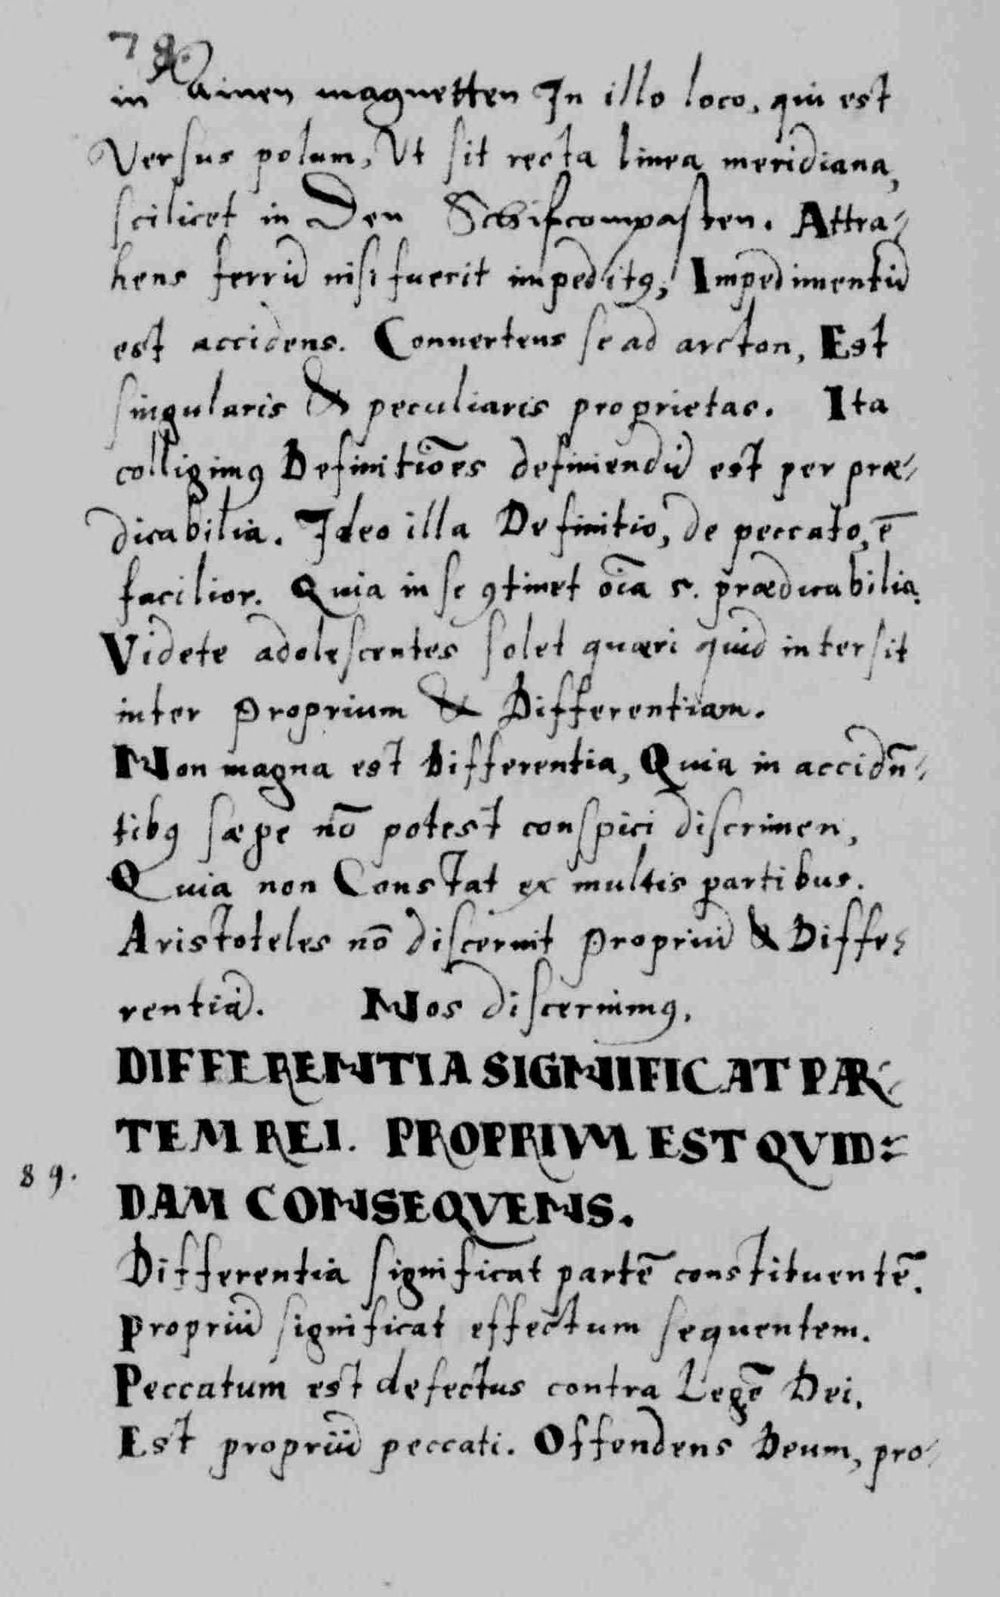 78.
in ainen magnetten In illo loco, qui est
Versus polum, Ut sit recta linea meridiana,
scilicet in Den Schifcompasten. Attra-
hens ferrũ nisi fuerit impeditꝰ, Impedimentũ
est accidens. Conuertens se ad arcton, Est
singularis & peculiaris proprietas. Ita
colligimꝰ Definitiões definiendũ est per præ-
dicabilia. Ideo illa Definitio, de peccato, ē
facilior. Quia in se ꝯtinet oĩa 5. prædicabilia.
Videte adolescentes solet quæri quid intersit
inter Proprium & Differentiam.
Non magna est Differentia, Quia in accidñ-
tibꝰ sæpe nõ potest conspici discrimen,
Quia non Constat ex multis partibus.
Aristoteles nõ discernit Propriũ & Diffe-
rentiã. Nos discernimꝰ.
DIFFERENTIA SIGNIFICAT PAR-
TEM REI. PROPRIVM EST QVID-
89.
DAM CONSEQVENS.
Differentia significat partẽ constituentẽ.
Propriũ significat effectum sequentem.
Peccatum est defectus contra Legẽ Dei.
Est propriũ peccati. Offendens Deum, pro-